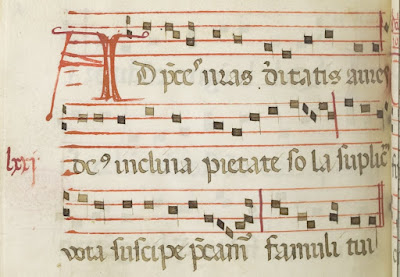 AD p̄ces n̄ras d̄itatis aure
lxxj de9 inclina pietate so la suplicū
vota suscipe p̄cam̄ famuli tui